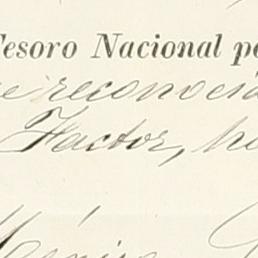 Tesoro Nacional p
e reconocid
Factor, h
Méxic